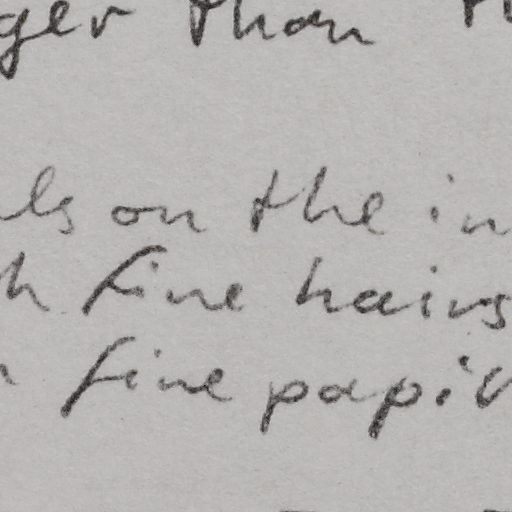 ger than
ls on the in
h fine hairs
fine papi